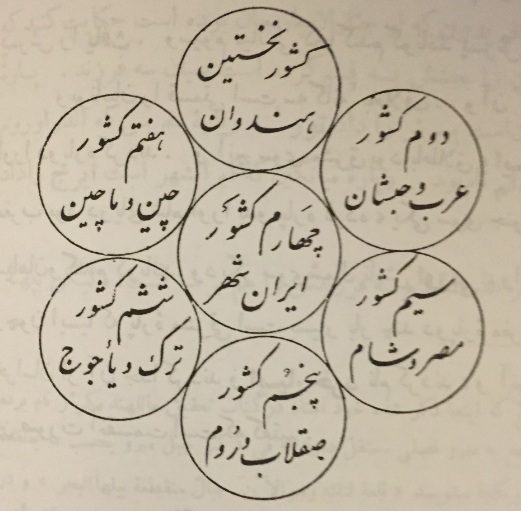 کشور نخستین
هندوان
دوم کشور
عرب و حبشان
سیم کشور
مصر و شام
چهارم کشور
ایران شهر
پنجم کشور
صقلاب و روم
ششم کشور
ترک و یأجوج
هفتم کشور
چین و ماچین